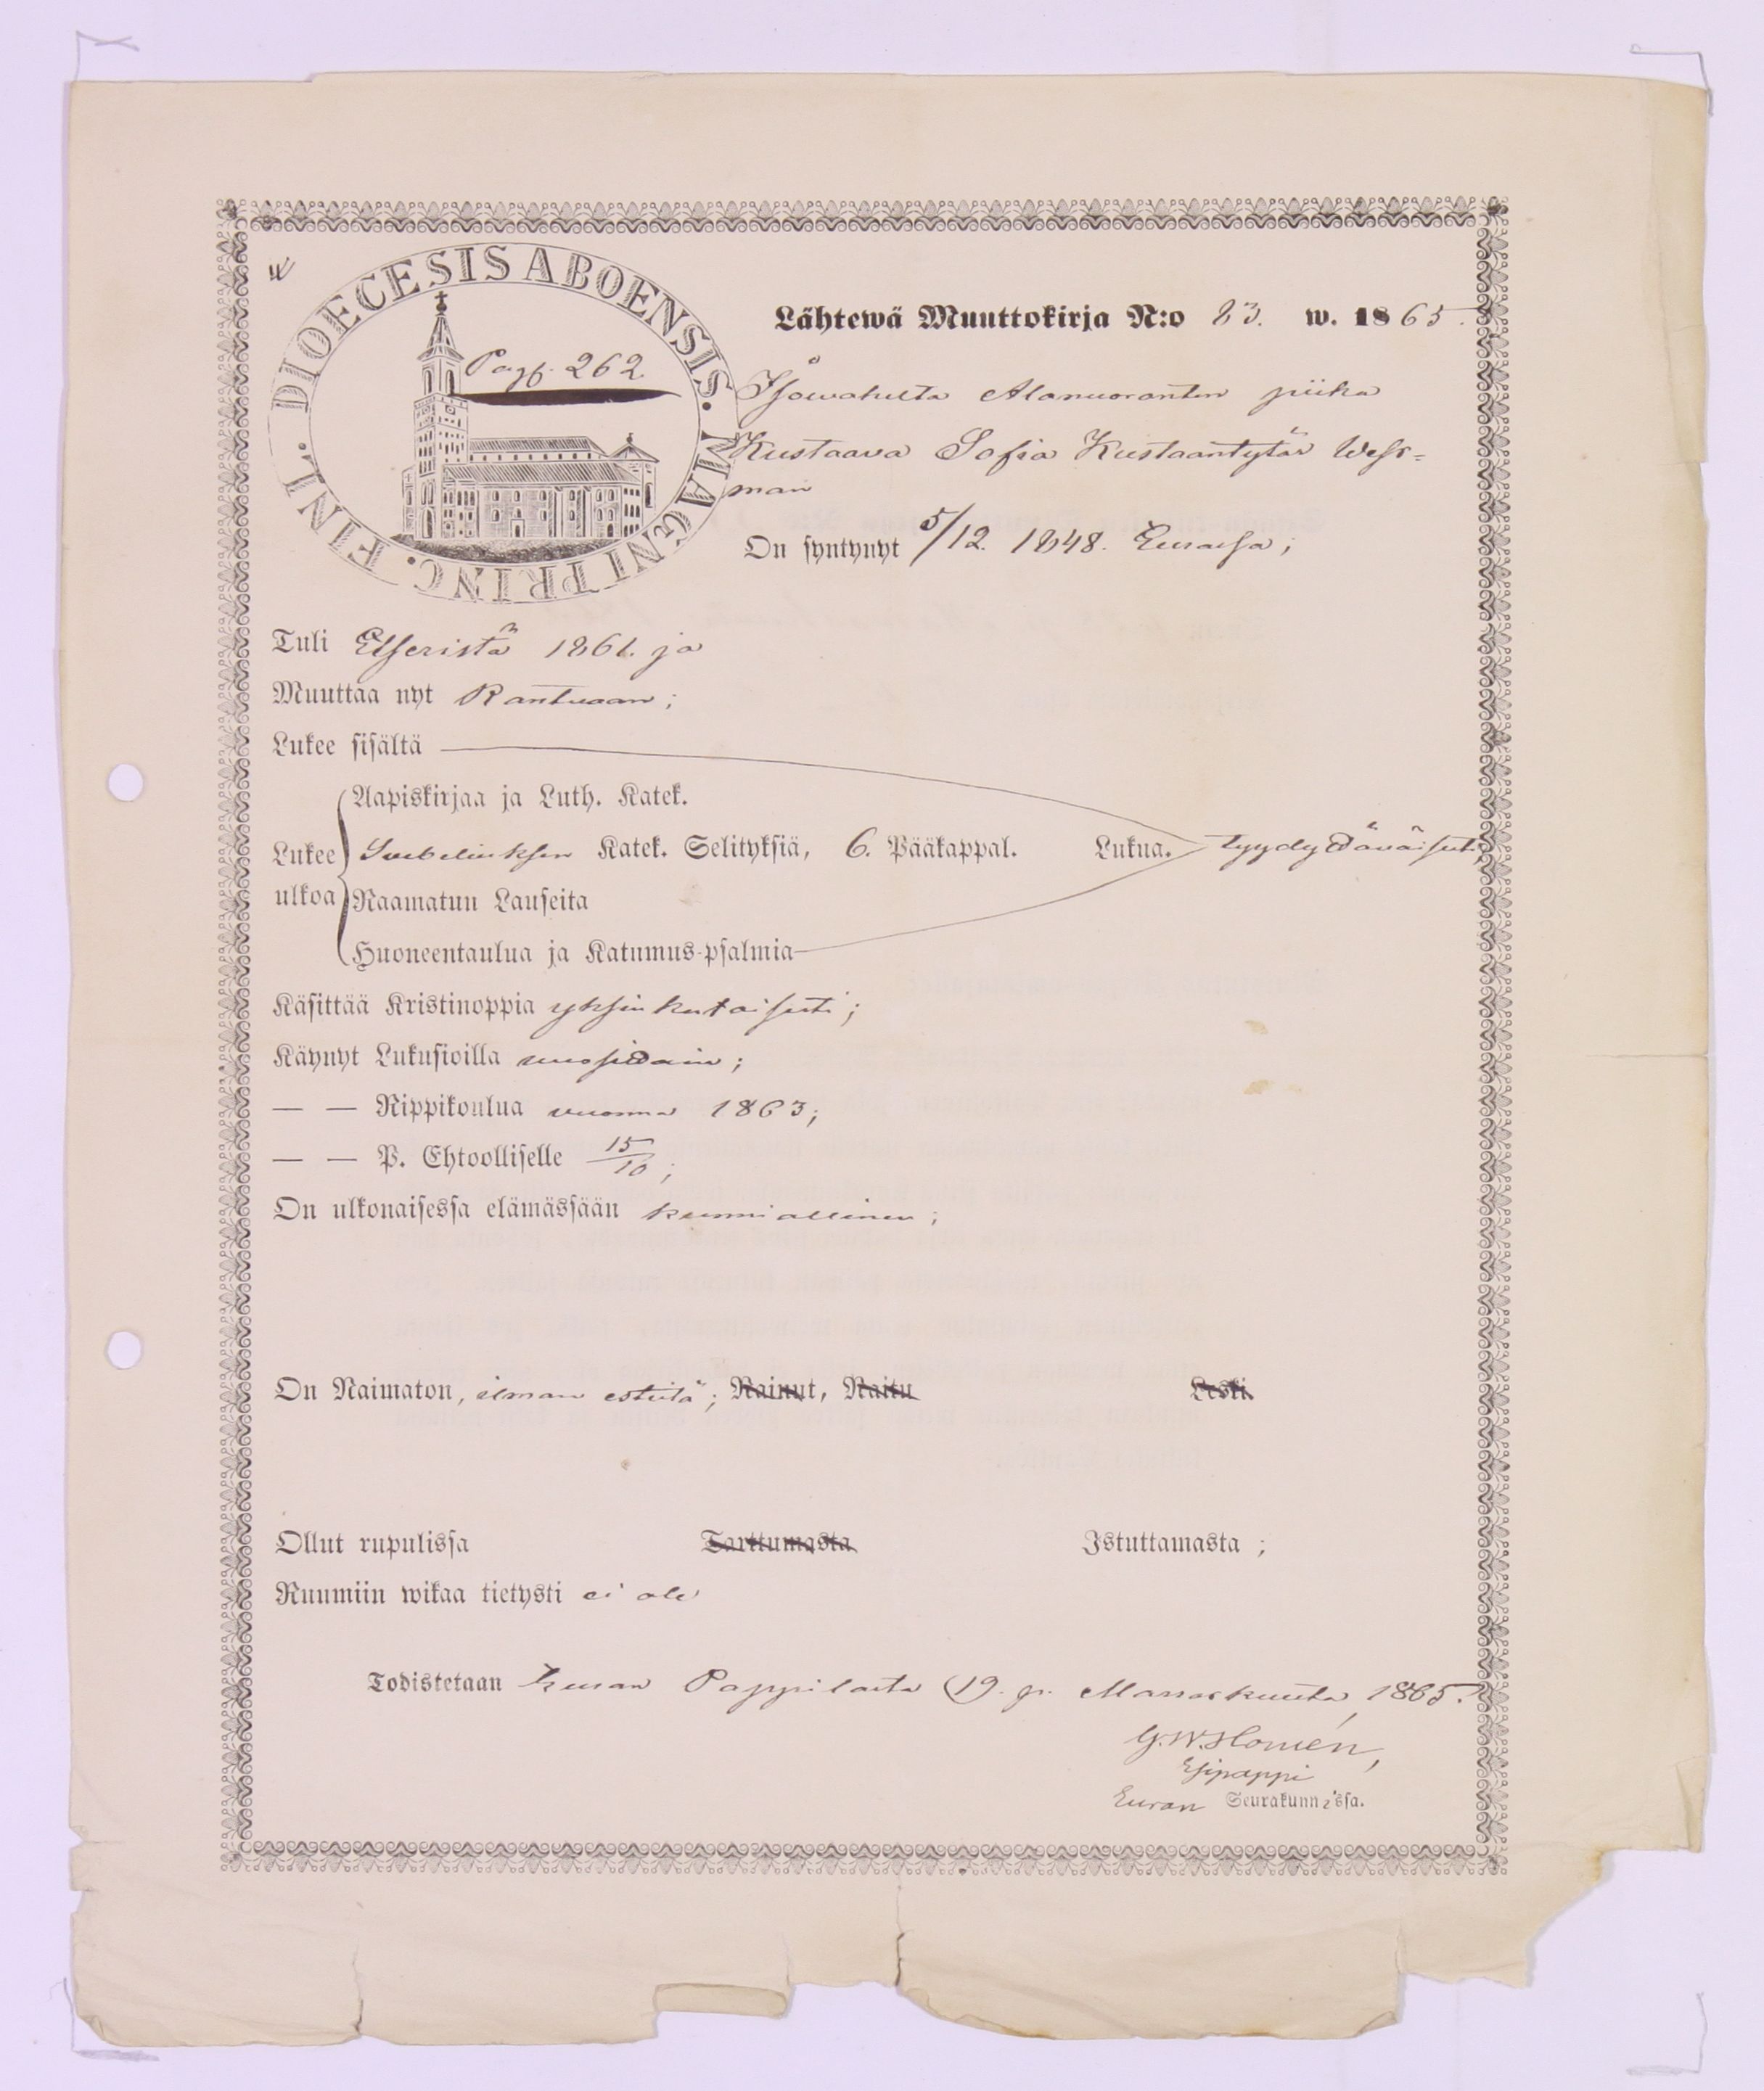 DIOECESIS ABOENSIS. MAGNI PRINC. FINL.
Pag. 262.
Lähtewä Muuttokirja N:o 83. w. 1865.
Isowahelta Alanuorantin piika
Kustaava Sofia Kustaantytär West=
man
On syntynyt 5/12. 1848. Eurassa;
Tuli 1861. ja
Muuttaa nyt Rantuaan;
Lukee sisältä
Aapiskirjaa ja Luth. Katek.
Lukee ulkoa Svebeliuksen Katek. Selityksiä, 6. Pääkappal. Lukua. tyydyttäväisesti;
Raamatun Lauseita
Huoneentaulua ja Katumus-psalmia
Käsittää Kristinoppia yksinkertaisesti;
Käynyt Lukusioilla vuosittain;
— — Rippikoulua vuonna 1863;
— — P. Ehtoolliselle 15/10;
On ulkonaisessa elämässään kunniallinen;
On Naimaton, ilman estettä; Nainut, Naitu Leski.
Ollut rupulissa Tarttumasta Istuttamasta;
Ruumiin wikaa tietysti ei ole
Todistetaan Euran Pappilasta 19. p. Marraskuuta 1865.
G. W. Homén,
Esipappi
Euran Seurakunnissa.